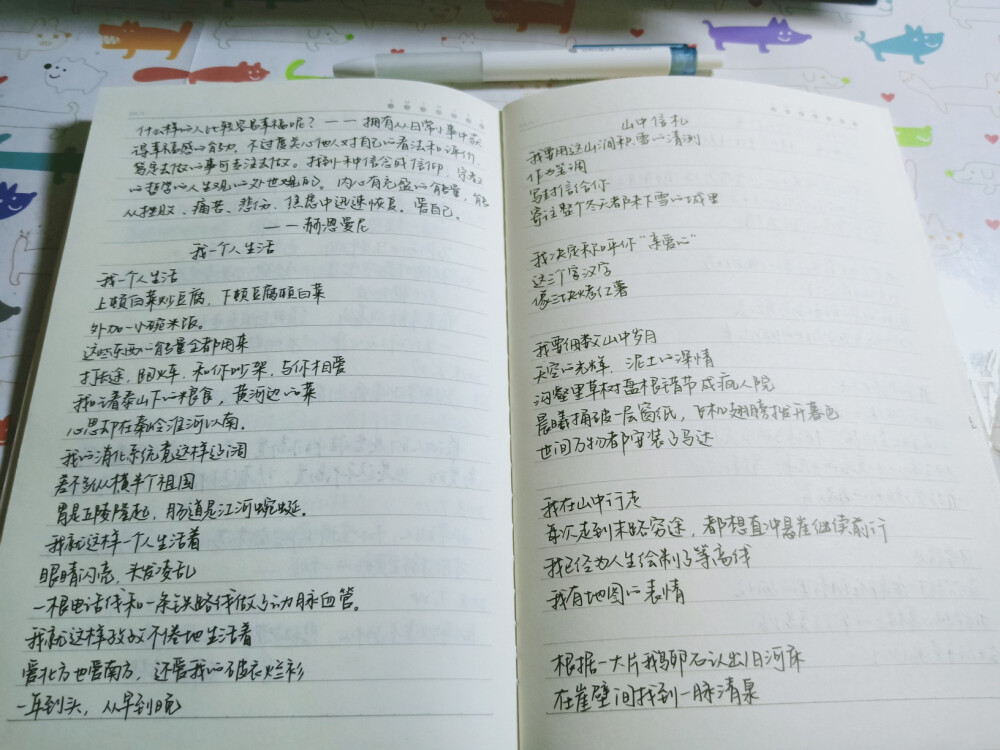 什么样的人比较容易幸福呢？——拥有从日常小事中获
得幸福感的能力，不过度关心他人对自己的看法和评价，
笃定去做的事可专注去做。找到一种信念或信仰，完善
的哲学的人生观的处世观的。内心有充盈的能量，能
从挫败、痛苦、悲伤、焦虑中迅速恢复。爱自己。
——赫恩曼尼
我一个人生活
我一个人生活
上顿白菜炒豆腐，下顿豆腐炖白菜
外加一小碗米饭。
这些东西的能量全都用来
打长途，跑火车，和你吵架，与你相爱
我吃着泰山下的粮食，黄河边的菜
心思却在秦岭淮河以南。
我的消化系统竟这样辽阔
差不多纵横半个祖国
胃是丘陵隆起，肠道是江河蜿蜒。
我就这样一个人生活着
眼睛闪亮，头发凌乱
一根电话线和一条铁路线做了动脉血管。
我就这样孜孜不倦地生活着
爱北方也爱南方，还爱我的破衣烂衫
一年到头，从早到晚
山中信札
我要用这山涧积雪的清洌
作为笔调
写封信给你
寄往整个冬天都未下雪的城里
我决定称呼你“亲爱的”
这三个字汉字
像三块烤红薯
我要细数山中岁月
天空的光辉，泥土的深情
沟壑里草树盘根错节成疯人院
晨曦捅破一层窗纸，飞机翅膀拨开暮色
世间万物都安装了马达
我在山中行走
每次走到末路穷途，都想直冲悬崖继续前行
我已经为人生绘制了等高线
我有地图的表情
根据一大片鹅卵石认出旧河床
在崖壁间找到一脉清泉